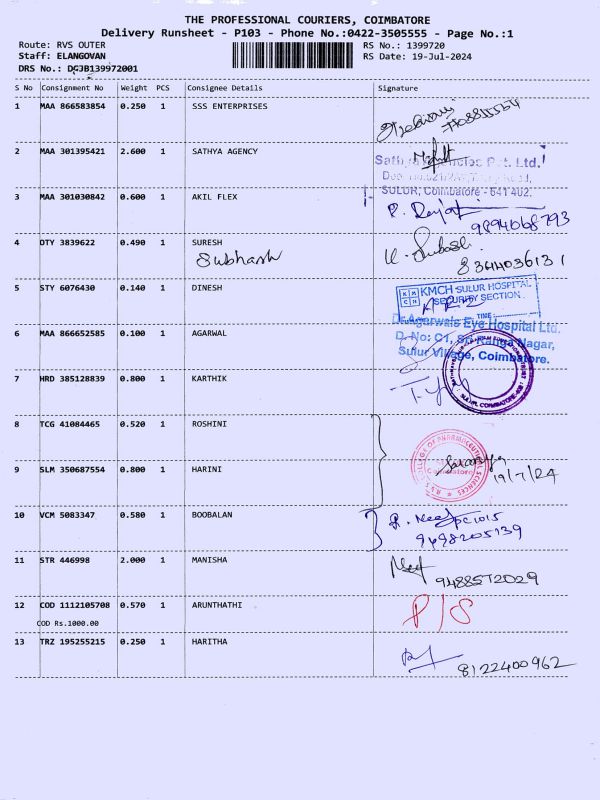 THE PROFESSIONAL COURIERS, COIMBATORE
Delivery Runsheet - P103 - Phone No.:0422-3505555 - Page No.:1
Route: RVS OUTER
RS No.: 1399720
Staff: ELANGOVAN
RS Date: 19-Jul-2024
DRS No.: DCJB139972001
S No Consignment No Weight PCS Consignee Details Signature
1 MAA 866583854 0.250 1 SSS ENTERPRISES
2 MAA 301395421 2.600 1 SATHYA AGENCY
Pvt. Ltd.
SULUR, Coimbatore - 641 402.
3 MAA 301030842 0.600 1 AKIL FLEX
9894068793
4 OTY 3839622 0.490 1 SURESH
Subhash
8344036131
5 STY 6076430 0.140 1 DINESH
KMCH SULUR HOSPITAL
SECURITY SECTION
TIME:
6 MAA 866652585 0.100 1 AGARWAL
Dr.Agarwals Eye Hospital Ltd.
D. No: C1, Nagar,
Sulur Village, Coimbatore.
7 HRD 385128839 0.800 1 KARTHIK
8 TCG 41084465 0.520 1 ROSHINI
COLLEGE OF PHARMACEUTICAL SCIENCES
Coimbatore
9 SLM 350687554 0.800 1 HARINI
19/7/24
10 VCM 5083347 0.580 1 BOOBALAN
9498205139
11 STR 446998 2.000 1 MANISHA
9488572029
12 COD 1112105708 0.570 1 ARUNTHATHI
COD Rs.1000.00
P/S
13 TRZ 195255215 0.250 1 HARITHA
8122400962